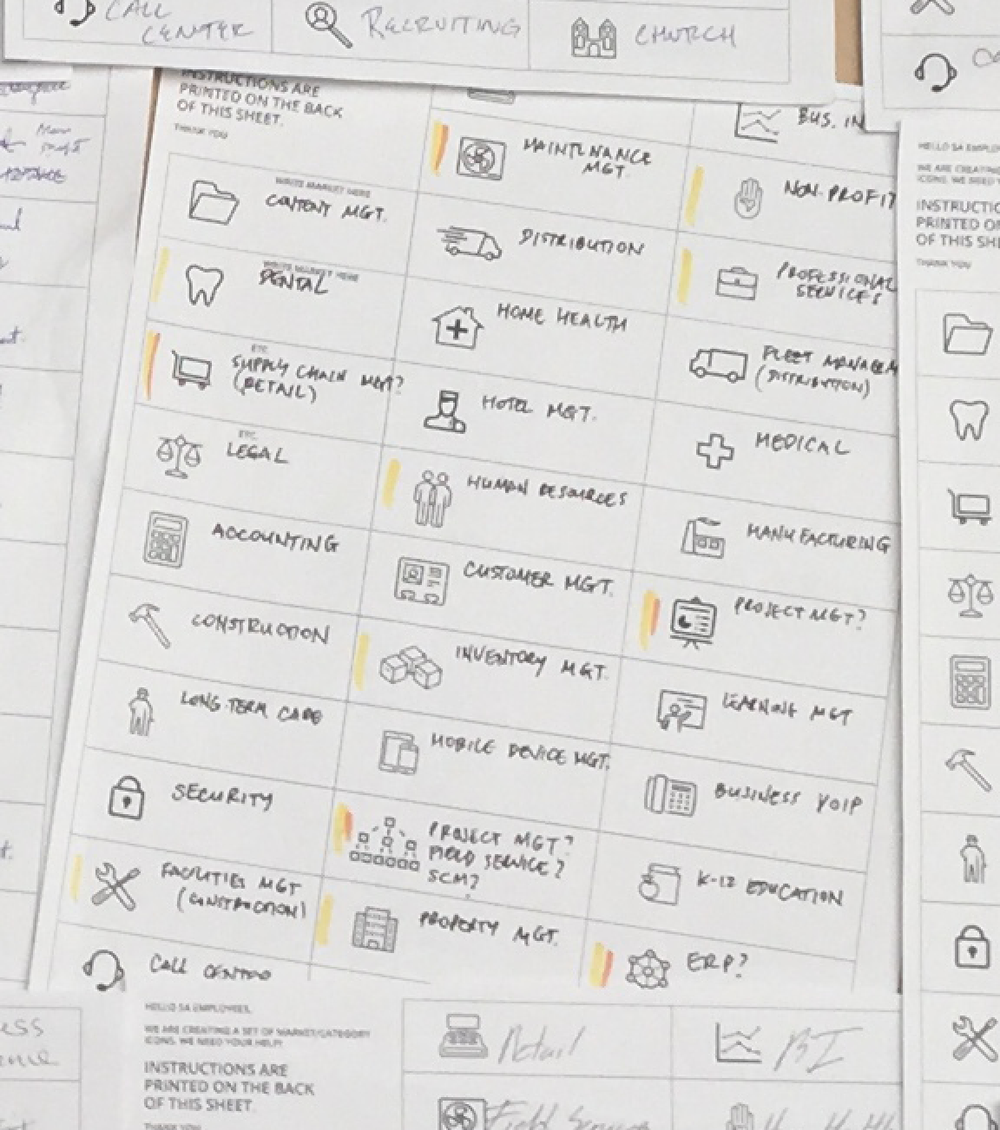 CALL
CENTER
RECRUITING
CHURCH
INSTRUCTIONS ARE
PRINTED ON THE BACK
OF THIS SHEET.
THANK YOU
WRITE MARKET HERE
CONTENT MGT.
WRITE MARKET HERE
DENTAL
ETC.
SUPPLY CHAIN MGT?
(RETAIL)
ETC.
LEGAL
ACCOUNTING
CONSTRUCTION
LONG TERM CARE
SECURITY
FACILITIES MGT
(CONSTRUCTION)
CALL CENTER
MAINTENANCE
MGT.
DISTRIBUTION
HOME HEALTH
HOTEL MGT.
HUMAN RESOURCES
CUSTOMER MGT.
INVENTORY MGT.
MOBILE DEVICE MGT.
PROJECT MGT?
FIELD SERVICE?
SCM?
PROPERTY MGT.
BUS. IN
NON-PROFIT
PROFESSIONAL
SERVICES
FLEET MANAGEM
(DISTRIBUTION)
MEDICAL
MANUFACTURING
PROJECT MGT?
LEARNING MGT
BUSINESS VOIP
K-12 EDUCATION
ERP?
HELLO SA EMPLOYE
WE ARE CREATING
ICONS. WE NEED Y
INSTRUCTIO
PRINTED O
OF THIS SHE
THANK YOU
HELLO SA EMPLOYEES,
WE ARE CREATING A SET OF MARKET/CATEGORY
ICONS. WE NEED YOUR HELP!
INSTRUCTIONS ARE
PRINTED ON THE BACK
OF THIS SHEET.
THANK YOU
Retail
BI
Field Service